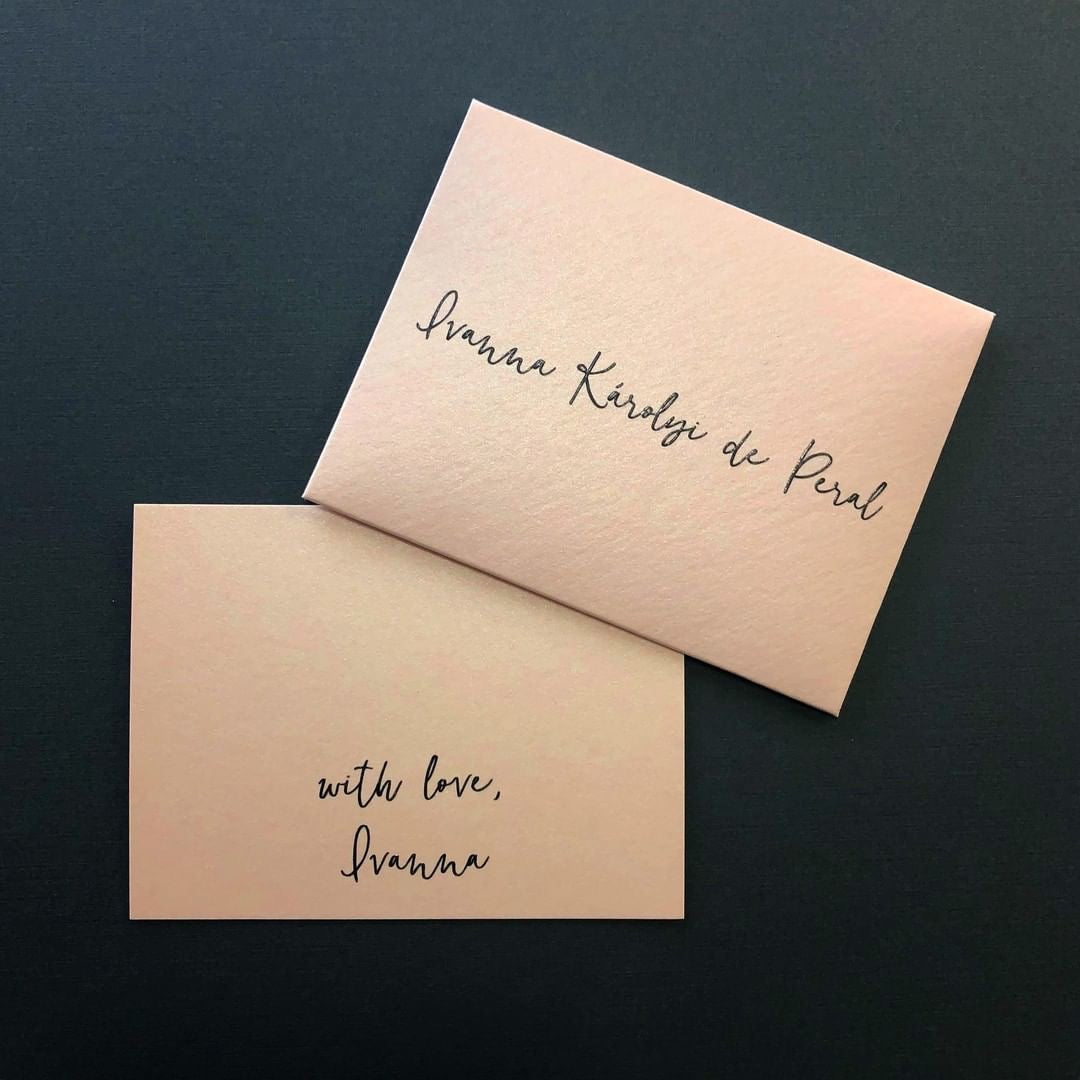 Ivanna Károlyi de Peral
with love,
Ivanna